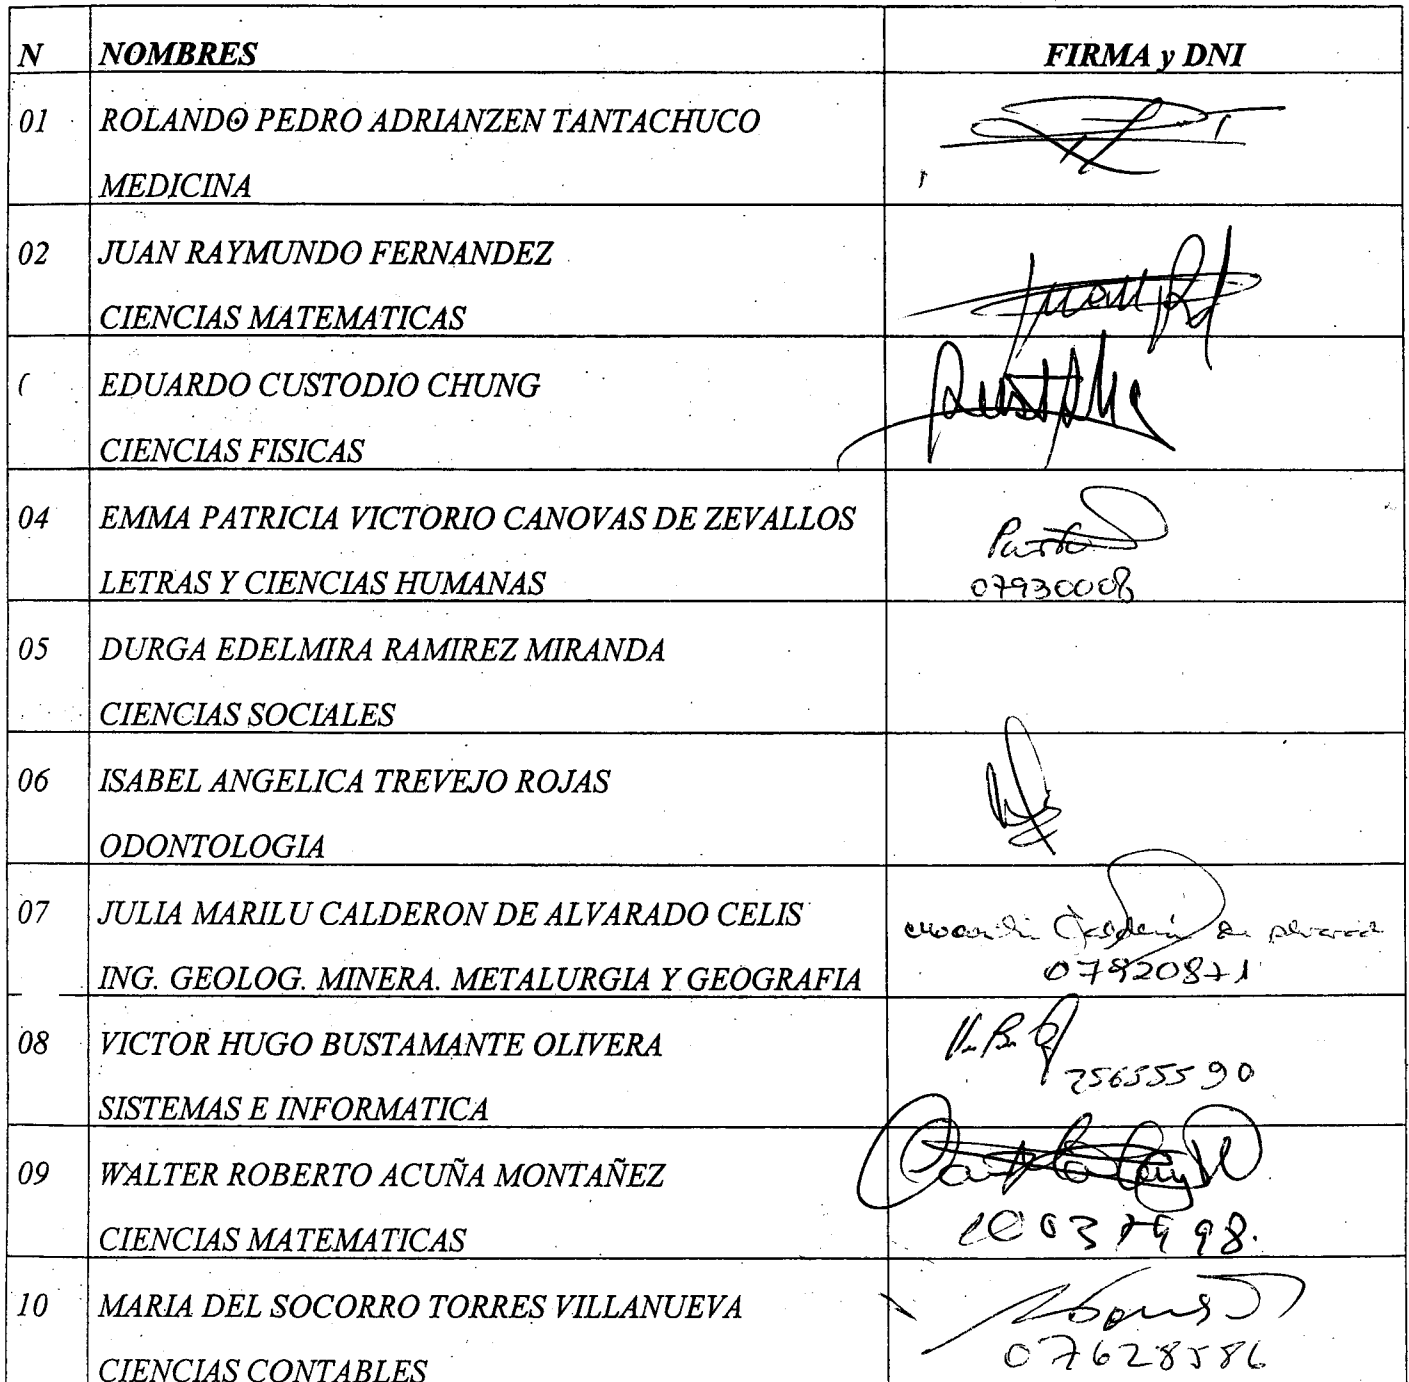 N NOMBRES FIRMA y DNI
01 ROLANDO PEDRO ADRIANZEN TANTACHUCO
MEDICINA
02 JUAN RAYMUNDO FERNANDEZ
CIENCIAS MATEMATICAS
EDUARDO CUSTODIO CHUNG
CIENCIAS FISICAS
04 EMMA PATRICIA VICTORIO CANOVAS DE ZEVALLOS
LETRAS Y CIENCIAS HUMANAS 07930008
05 DURGA EDELMIRA RAMIREZ MIRANDA
CIENCIAS SOCIALES
06 ISABEL ANGELICA TREVEJO ROJAS
ODONTOLOGIA
07 JULIA MARILU CALDERON DE ALVARADO CELIS
ING. GEOLOG. MINERA. METALURGIA Y GEOGRAFIA
08 VICTOR HUGO BUSTAMANTE OLIVERA
25655590
SISTEMAS E INFORMATICA
09 WALTER ROBERTO ACUÑA MONTAÑEZ
CIENCIAS MATEMATICAS
10 MARIA DEL SOCORRO TORRES VILLANUEVA
CIENCIAS CONTABLES 07628586